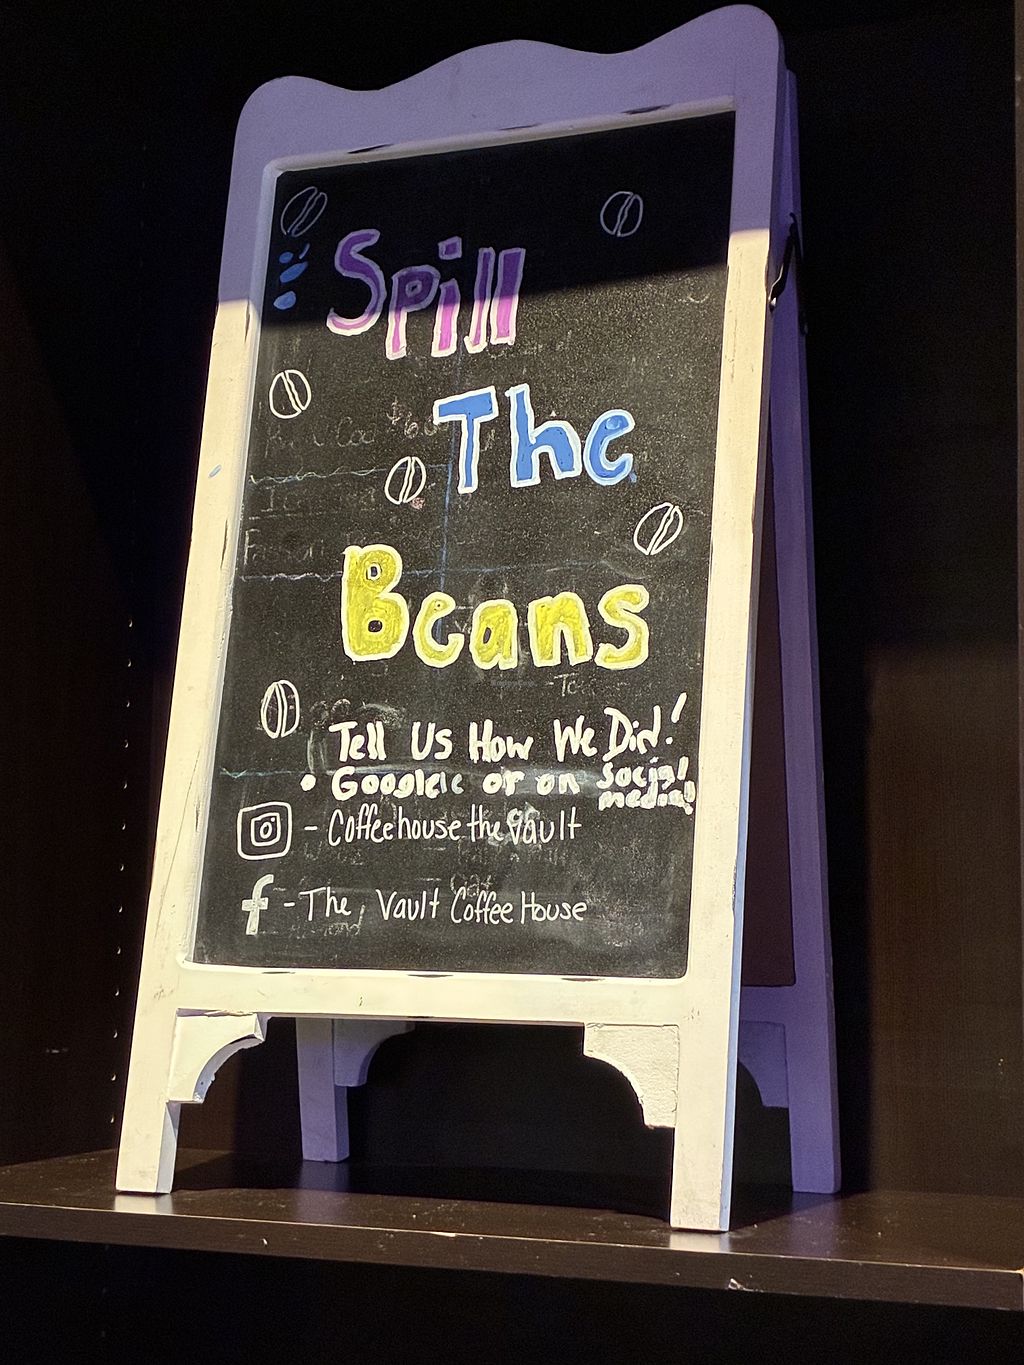 Spill
The
Beans
Tell Us How We Did!
• Google or on social media!
- Coffeehouse the vault
f - The Vault Coffee House